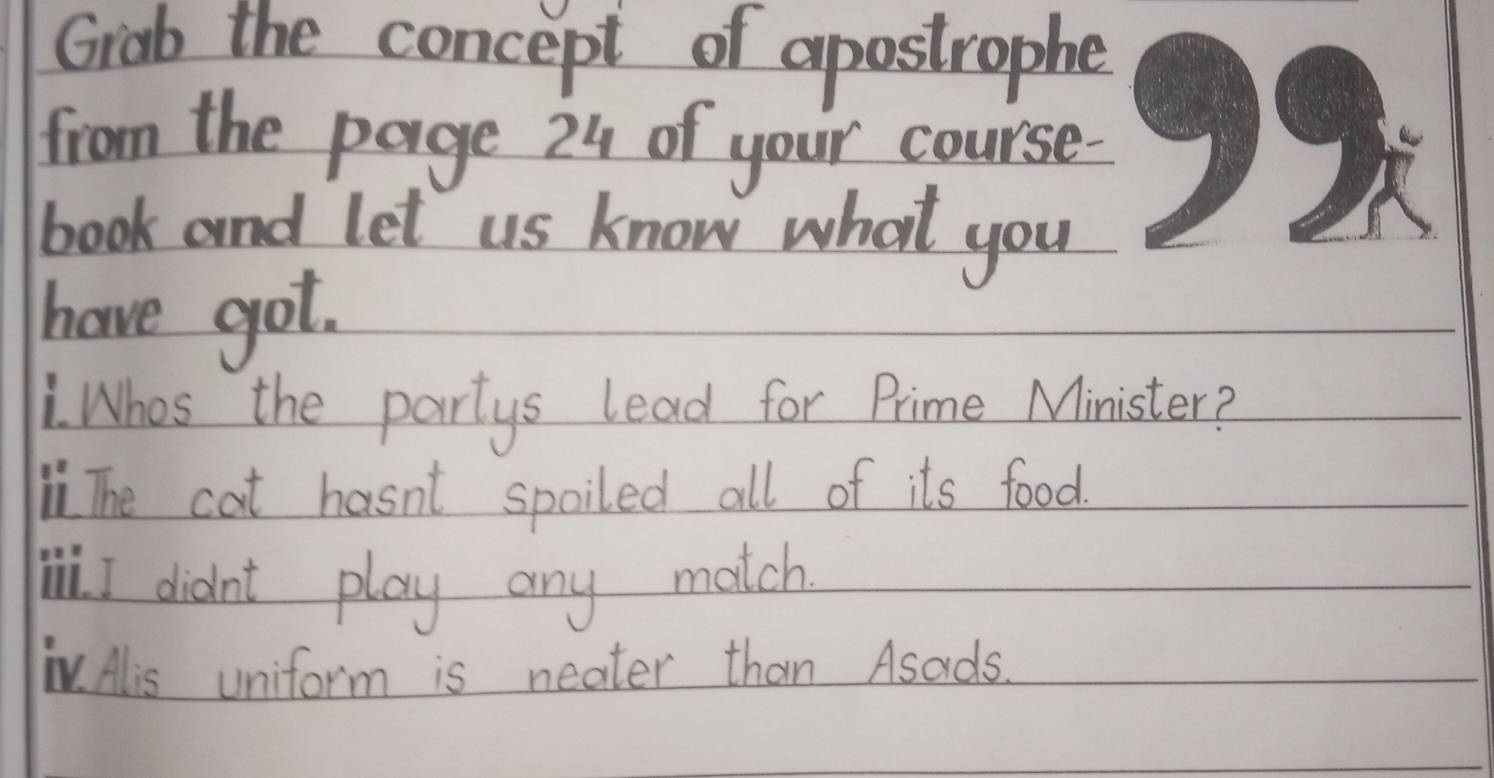 Grab the concept of apostrophe
from the page 24 of your course-
book and let us know what you
have got.
i. Whos the partys lead for Prime Minister?
ii The cat hasnt spoiled all of its food.
iii. I didnt play any match.
iv. Alis uniform is neater than Asads.